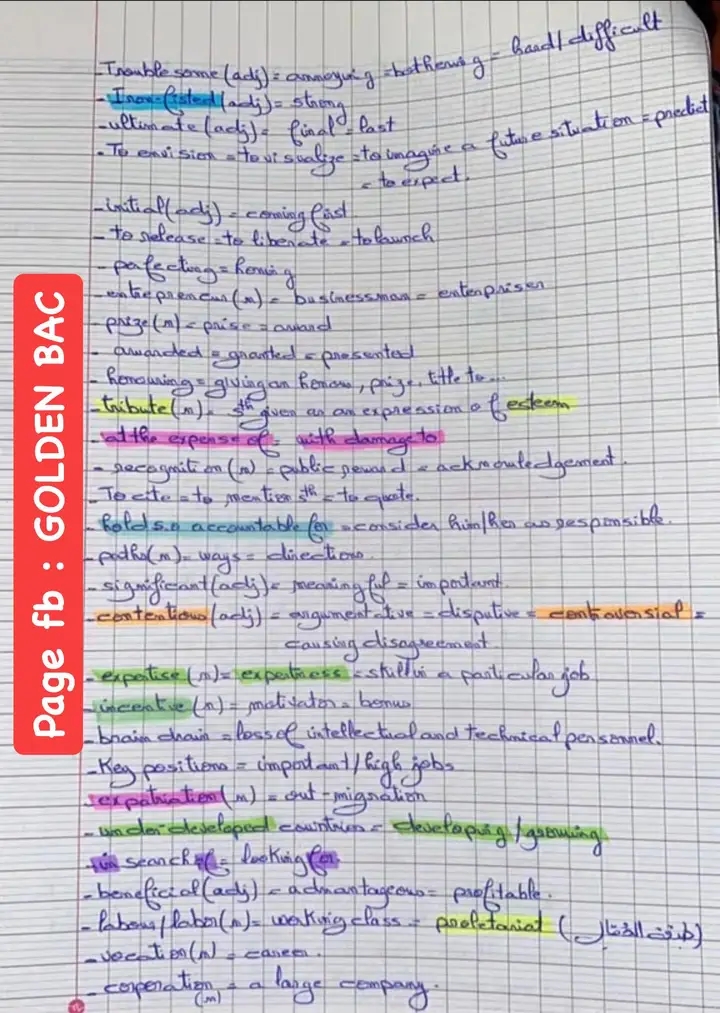 - Troublesome (adj) = annoying = bothering = hard / difficult
- Iron-fisted (adj) = strong
- ultimate (adj) = final = last
- To envision = to visualize = to imagine a future situation = predict
= to expect.
- initial (adj) = coming first
- to release = to liberate = to launch
- perfecting = honing
- entrepreneur (n) = businessman = enterpriser
- prize (n) = prise = award
- awarded = granted = presented
- honouring = giving an honour, prize, title to ...
- tribute (n) = sth given as an expression of esteem
- at the expense of = with damage to
- recognition (n) = public reward = acknowledgement.
- To cite = to mention sth = to quote.
- hold s.o accountable for = consider him/her as responsible.
- paths (n) = ways = directions.
- significant (adj) = meaningful = important.
- contentious (adj) = argumentative = disputive = controversial =
causing disagreement.
- expertise (n) = expertness = skill in a particular job
- incentive (n) = motivator = bonus
- brain drain = loss of intellectual and technical personnel.
- Key positions = important / high jobs
- expatriation (n) = out-migration
- under developed countries = developing / growing
- in search of = looking for
- beneficial (adj) = advantageous = profitable.
- labour / labor (n) = working class = proletariat (طبقة العمال)
- vocation (n) = career.
- corporation (n) = a large company.
Page fb : GOLDEN BAC